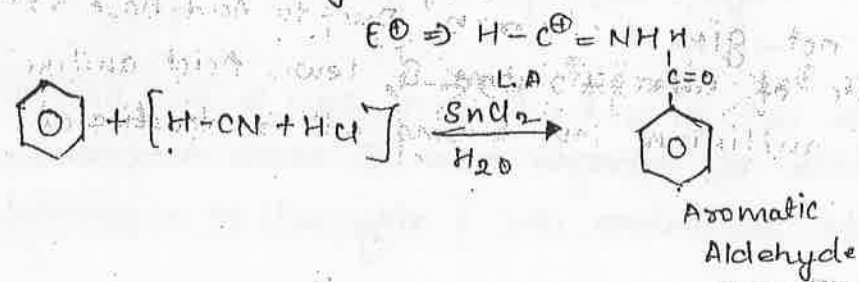 E⊕ ⇒ H-C⊕=NH
H
C=O
L.A
+ [H-CN + HCl] SnCl2
H2O
Aromatic
Aldehyde